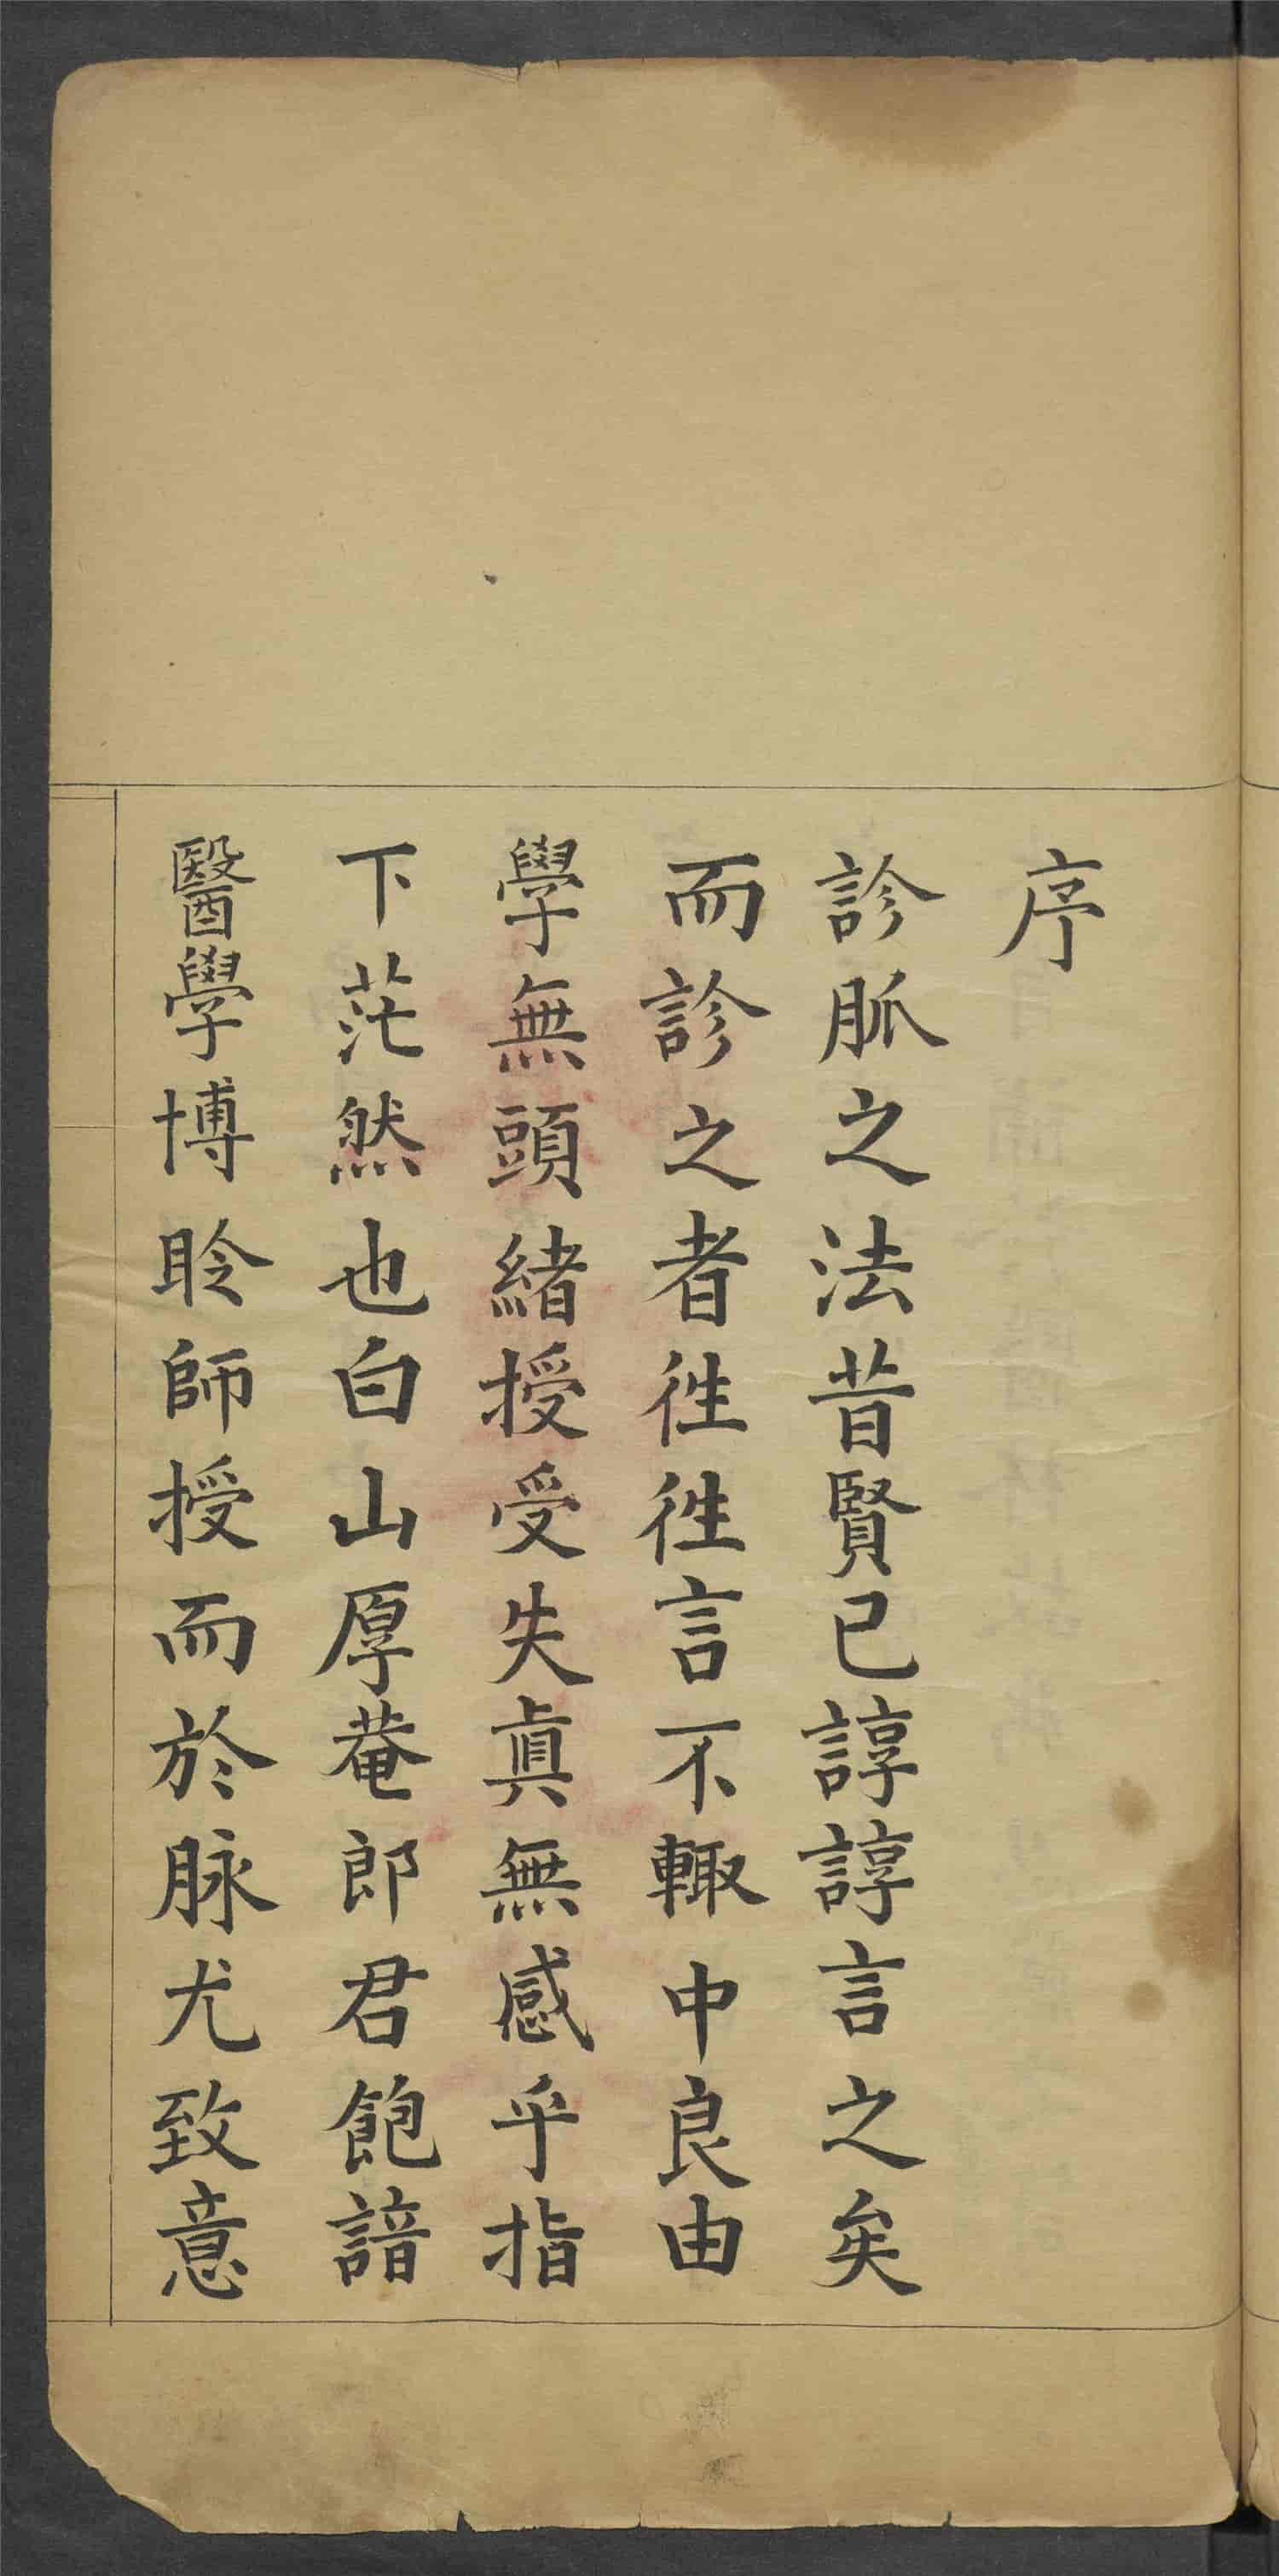 序
診脈之法昔賢已諄諄言之矣
而診之者徃徃言不輙中良由
學無頭緒授受失真無感乎指
下茫然也白山厚菴郎君飽諳
醫學博聆師授而於脉尤致意